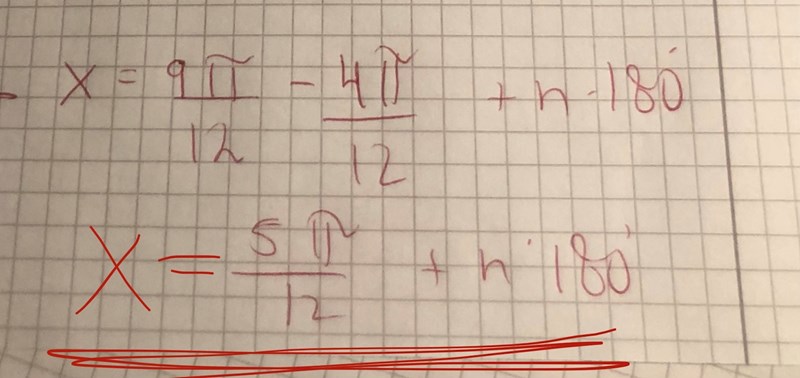 x = 9π/12 - 4π/12 + n · 180°
x = 5π/12 + n · 180°